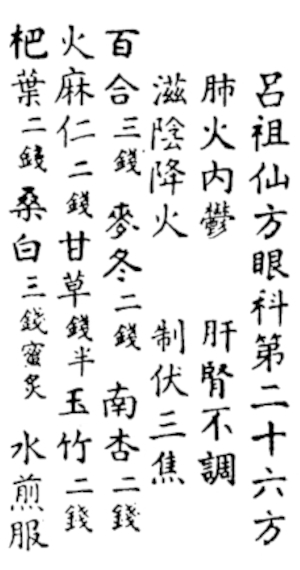 呂祖仙方眼科第二十六方
肺火內鬱 肝腎不調
滋陰降火 制伏三焦
百合三錢 麥冬二錢 南杏二錢
火麻仁二錢 甘草錢半 玉竹二錢
杷葉二錢 桑白三錢蜜炙 水煎服